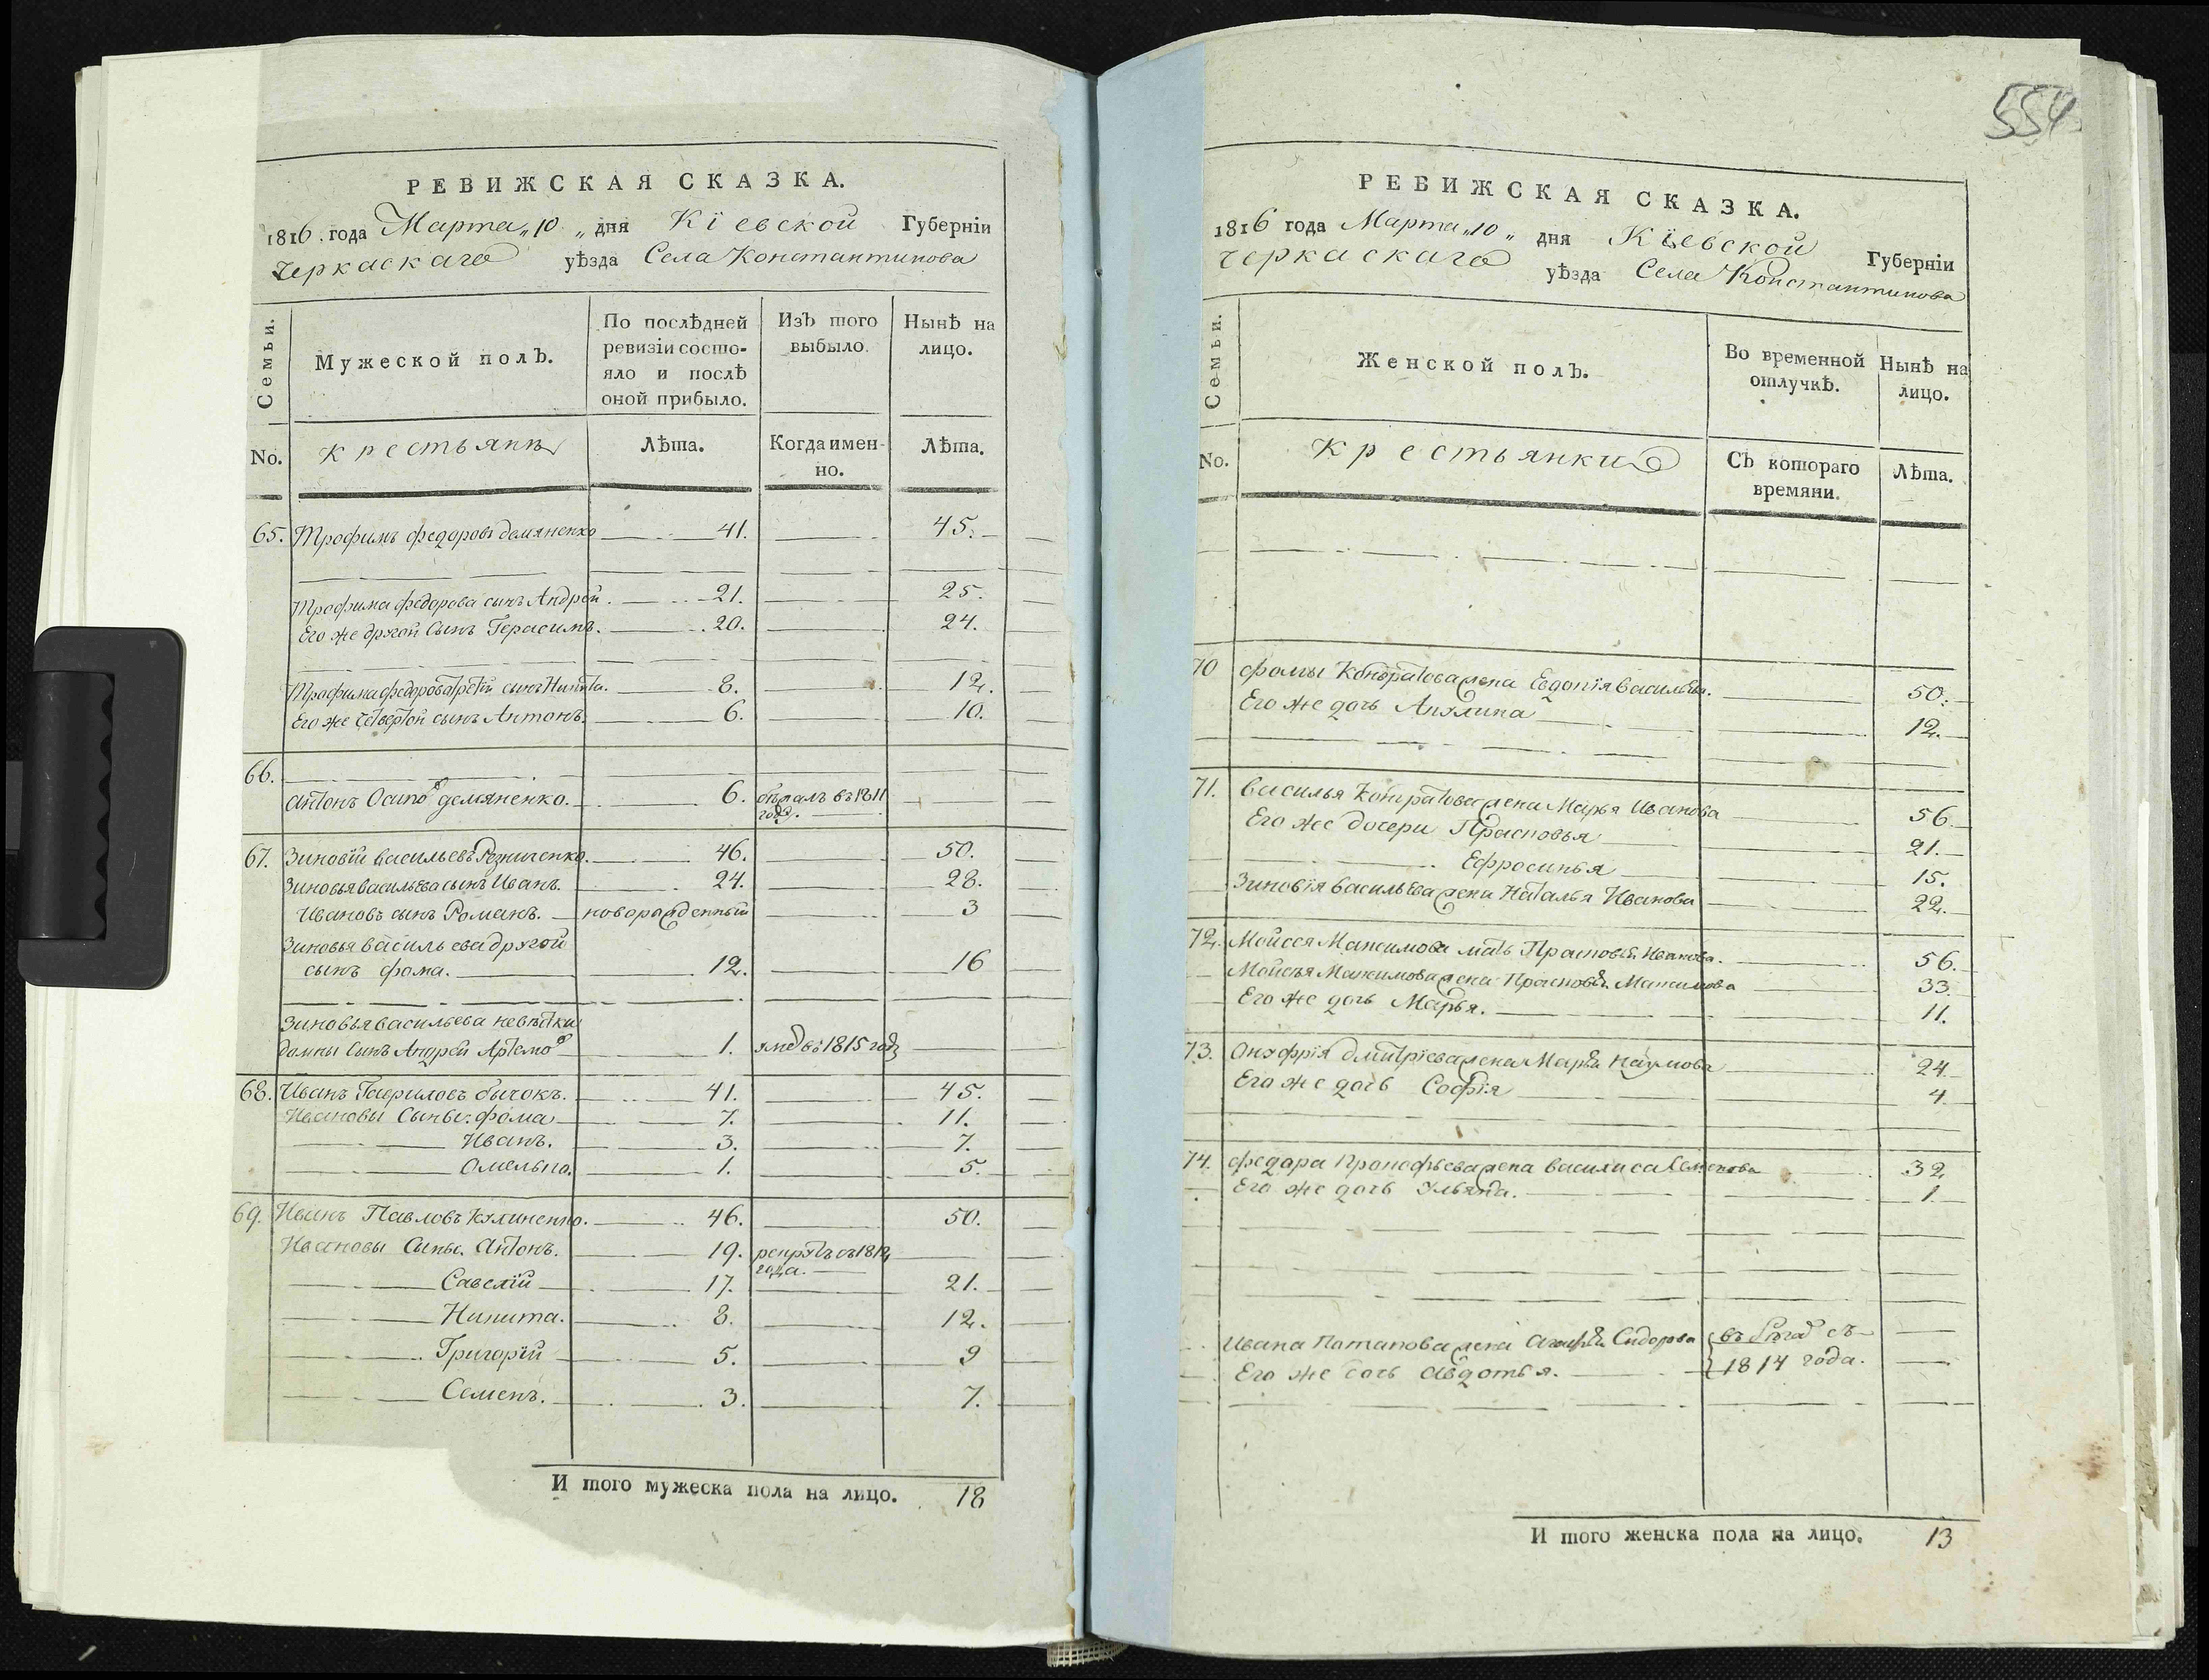 РЕВИЖСКАЯ СКАЗКА.
1816. года Марта „10 „ дня Кіевской Губерніи
Черкаскаго уѣзда Села Константинова
Семьи.
Мужеской полъ.
По послѣдней ревизіи состо-
яло и послѣ
оной прибыло.
Изъ того
выбыло.
Нынѣ на
лицо.
No.
крестьянѣ
Лѣта.
Когда имен-
но.
Лѣта.
65. Трофимъ федоровъ демяненко 41. 45.
Трофима федорова сынъ Андрей. 21. 25.
Его же другой Сынъ Герасимъ. 20. 24.
Трофима федорова третій сынъ Никита. 8. 12.
Его же четвертой сынъ Антонъ. 6. 10.
66.
Антонъ Осипов демяненко. 6. бѣжалъ въ 1811
году.
67. Зиновій васильевъ Резниченко. 46. 50.
Зиновья васильева сынъ Иванъ. 24. 28.
Ивановъ сынъ Романъ. новорожденный 3
Зиновья васильева другой
сынъ фома. 12. 16
Зиновья васильева невѣстки
домны Сынъ Андрей Артемов 1. умеръ въ 1815 году
68. Иванъ Гавриловъ бычокъ. 41. 45.
Ивановы Сынве. фома 7. 11.
Иванъ. 3. 7.
Омелько. 1. 5.
69. Иванъ Павловъ Кулиненко. 46. 50.
Ивановы Сынве. Антонъ. 19. рекрутъ съ 1812
года.
Савелій 17. 21.
Никита. 8. 12.
Григорій 5. 9
Семенъ. 3. 7.
И того мужеска пола на лицо. 18
554
РЕВИЖСКАЯ СКАЗКА.
1816 года Марта „10 „ дня Кіевской Губерніи
Черкаскаго уѣзда Села Константинова
Семьи.
Женской полъ.
Во временной
отлучкѣ.
Нынѣ на
лицо.
No.
Крестьянки
Съ котораго
времяни.
Лѣта.
70 фомы Кондратова жена Евдокія васильева. 50.
Его же дочь Акулина 12.
71. Василья Кондратова жена Марья Иванова 56
Его же дочери Прасковья 21.
Ефросинья 15.
Зиновія васильева жена Наталья Иванова 22.
72. Мойсея Максимова мать Прасковья Иванова. 56.
Мойсея Максимова жена Прасковья Максимова 33.
Его же дочь Марья. 11.
73. Онуфрія дмитріева жена Марья Наумова 24
Его же дочь Софія 4
74. федора Прокофьева жена василиса Семенова 32
Его же дочь Ульяна. 1.
Ивана Потапова жена Сидорова въ съ
Его же дочь Авдотья. 1814 года.
И того женска пола на лицо. 13